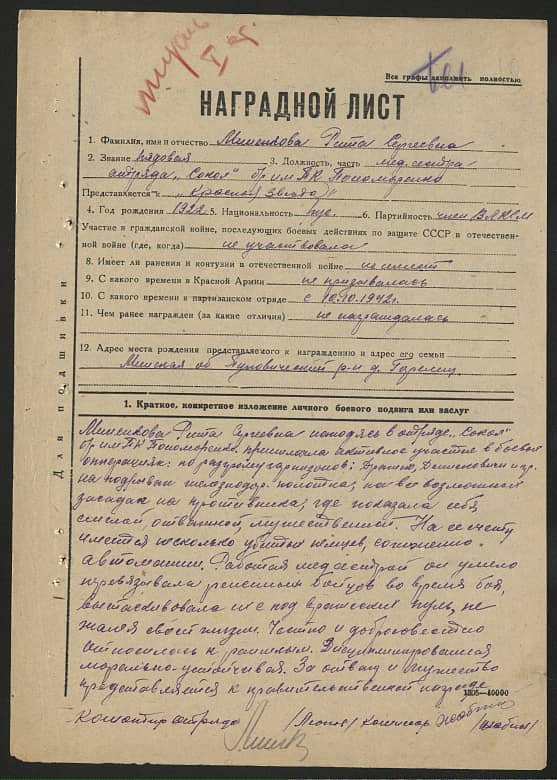 Все графы заполнить полностью
НАГРАДНОЙ ЛИСТ
1. Фамилия, имя и отчество Рита Сергеевна
2. Звание Рядовая 3. Должность, часть медсестра
отряда "Сокол" бр им ПК Пономаренко
Представляется к "Красной Звезда"
4. Год рождения 1922 5. Национальность 6. Партийность член ВЛКСМ
Участие в гражданской войне, последующих боевых действиях по защите СССР и отечествен-
ной войне (где, когда) не участвовала
8. Имеет ли ранения и контузии в отечественной войне не имеет
9. С какого времени в Красной Армии не призывалась
10. С какого времени в партизанском отряде с 10.10.1942г.
11. Чем ранее награжден (за какие отличия) не награждалась
12. Адрес места рождения представляемого к награждению и адрес его семьи
Минская об Пуховический р-н д.
Для подшивки
1. Краткое, конкретное изложение личного боевого подвига или заслуг
Рита Сергеевна находясь в отряде "Сокол"
бр им ПК Пономаренко принимала активное участие в боевых
операциях: по разгрому гарнизонов: и др.
на подрывах железнодор. полотна, на всевозможных
засадах на противника, где показала себя
смелой отважной, мужественной. На ее счету
имеется несколько убитых немцев, сожженно
автомашин. Работая медсестрой он умело
перевязывала раненных бойцов во время боя,
вытаскивовала их с под вражеских пуль, не
жалея своей жизни. Честно и добросовестно
относилась к раненым. Дисциплинированная
морально-устойчивая. За отвагу и мужество
представляется к правительственной награде
1205—10000
Командир отряда Комиссар